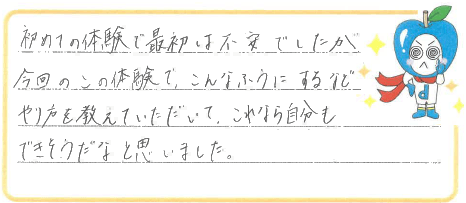 初めての体験で最初は不安でしたが
今回のこの体験で、こんなふうにするなど
やり方を教えていただいて、これなら自分も
できそうだなと思いました。